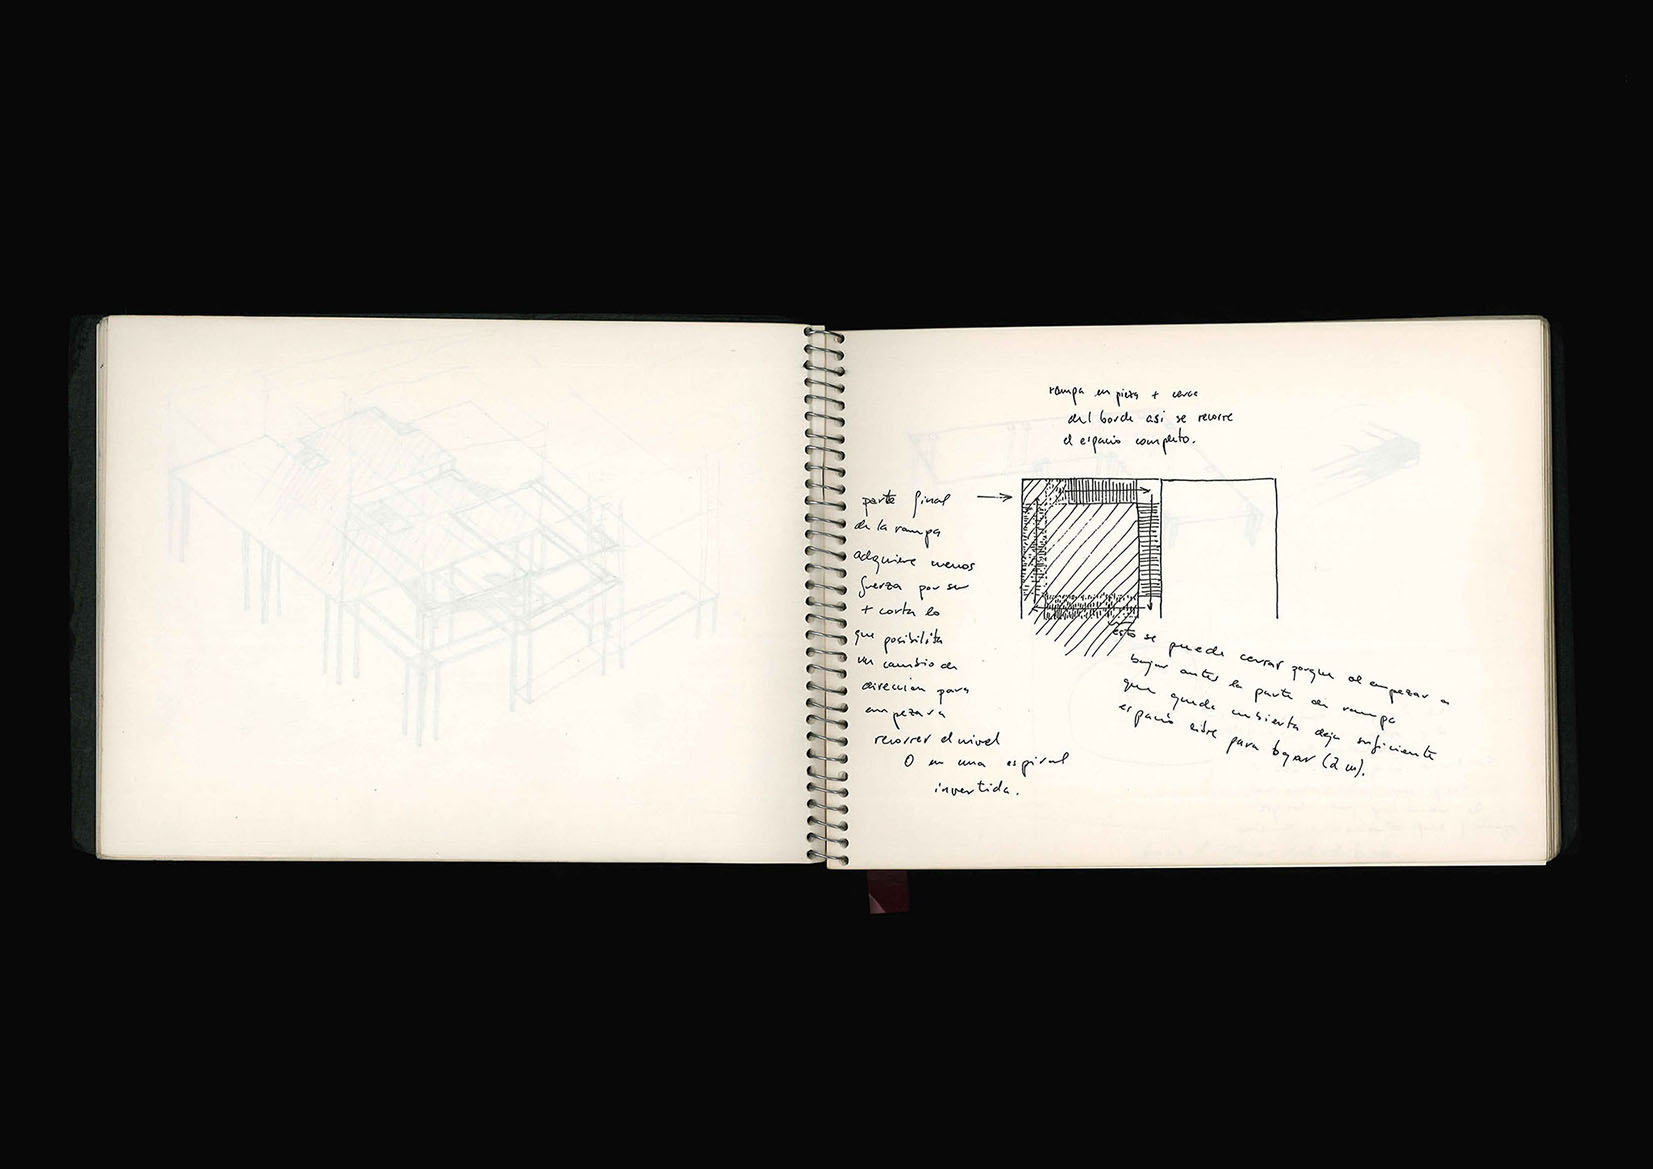 rampa empieza + cerca
del borde asi se recorre
el espacio completo.
parte final
de la rampa
adquiere menos
fuerza por ser
+ corta lo
que posibilita
un cambio de
direccion para
empezar a
recorrer el nivel
O en una espiral
invertida.
esto se puede cerrar porque al empezar a
bajar antes la parte de rampa
que queda cubierta deja suficiente
espacio libre para bajar (2 m).